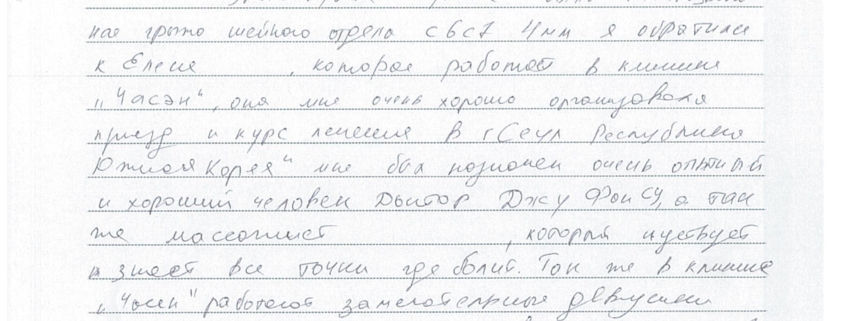 ная грыжа шейного отдела с6с7 4мм я обратилась
к Елене , которая работает в клинике
"Часэн", она мне очень хорошо организовала
приезд и курс лечения в г Сеул Республика
Южная Корея" мне был назначен очень опытный
и хороший человек Доктор Джу Фон Су, а так
же массажист , который чуствует
и знает все точки где болит. Так же в клинике
"Часен" работают замечательные девушки